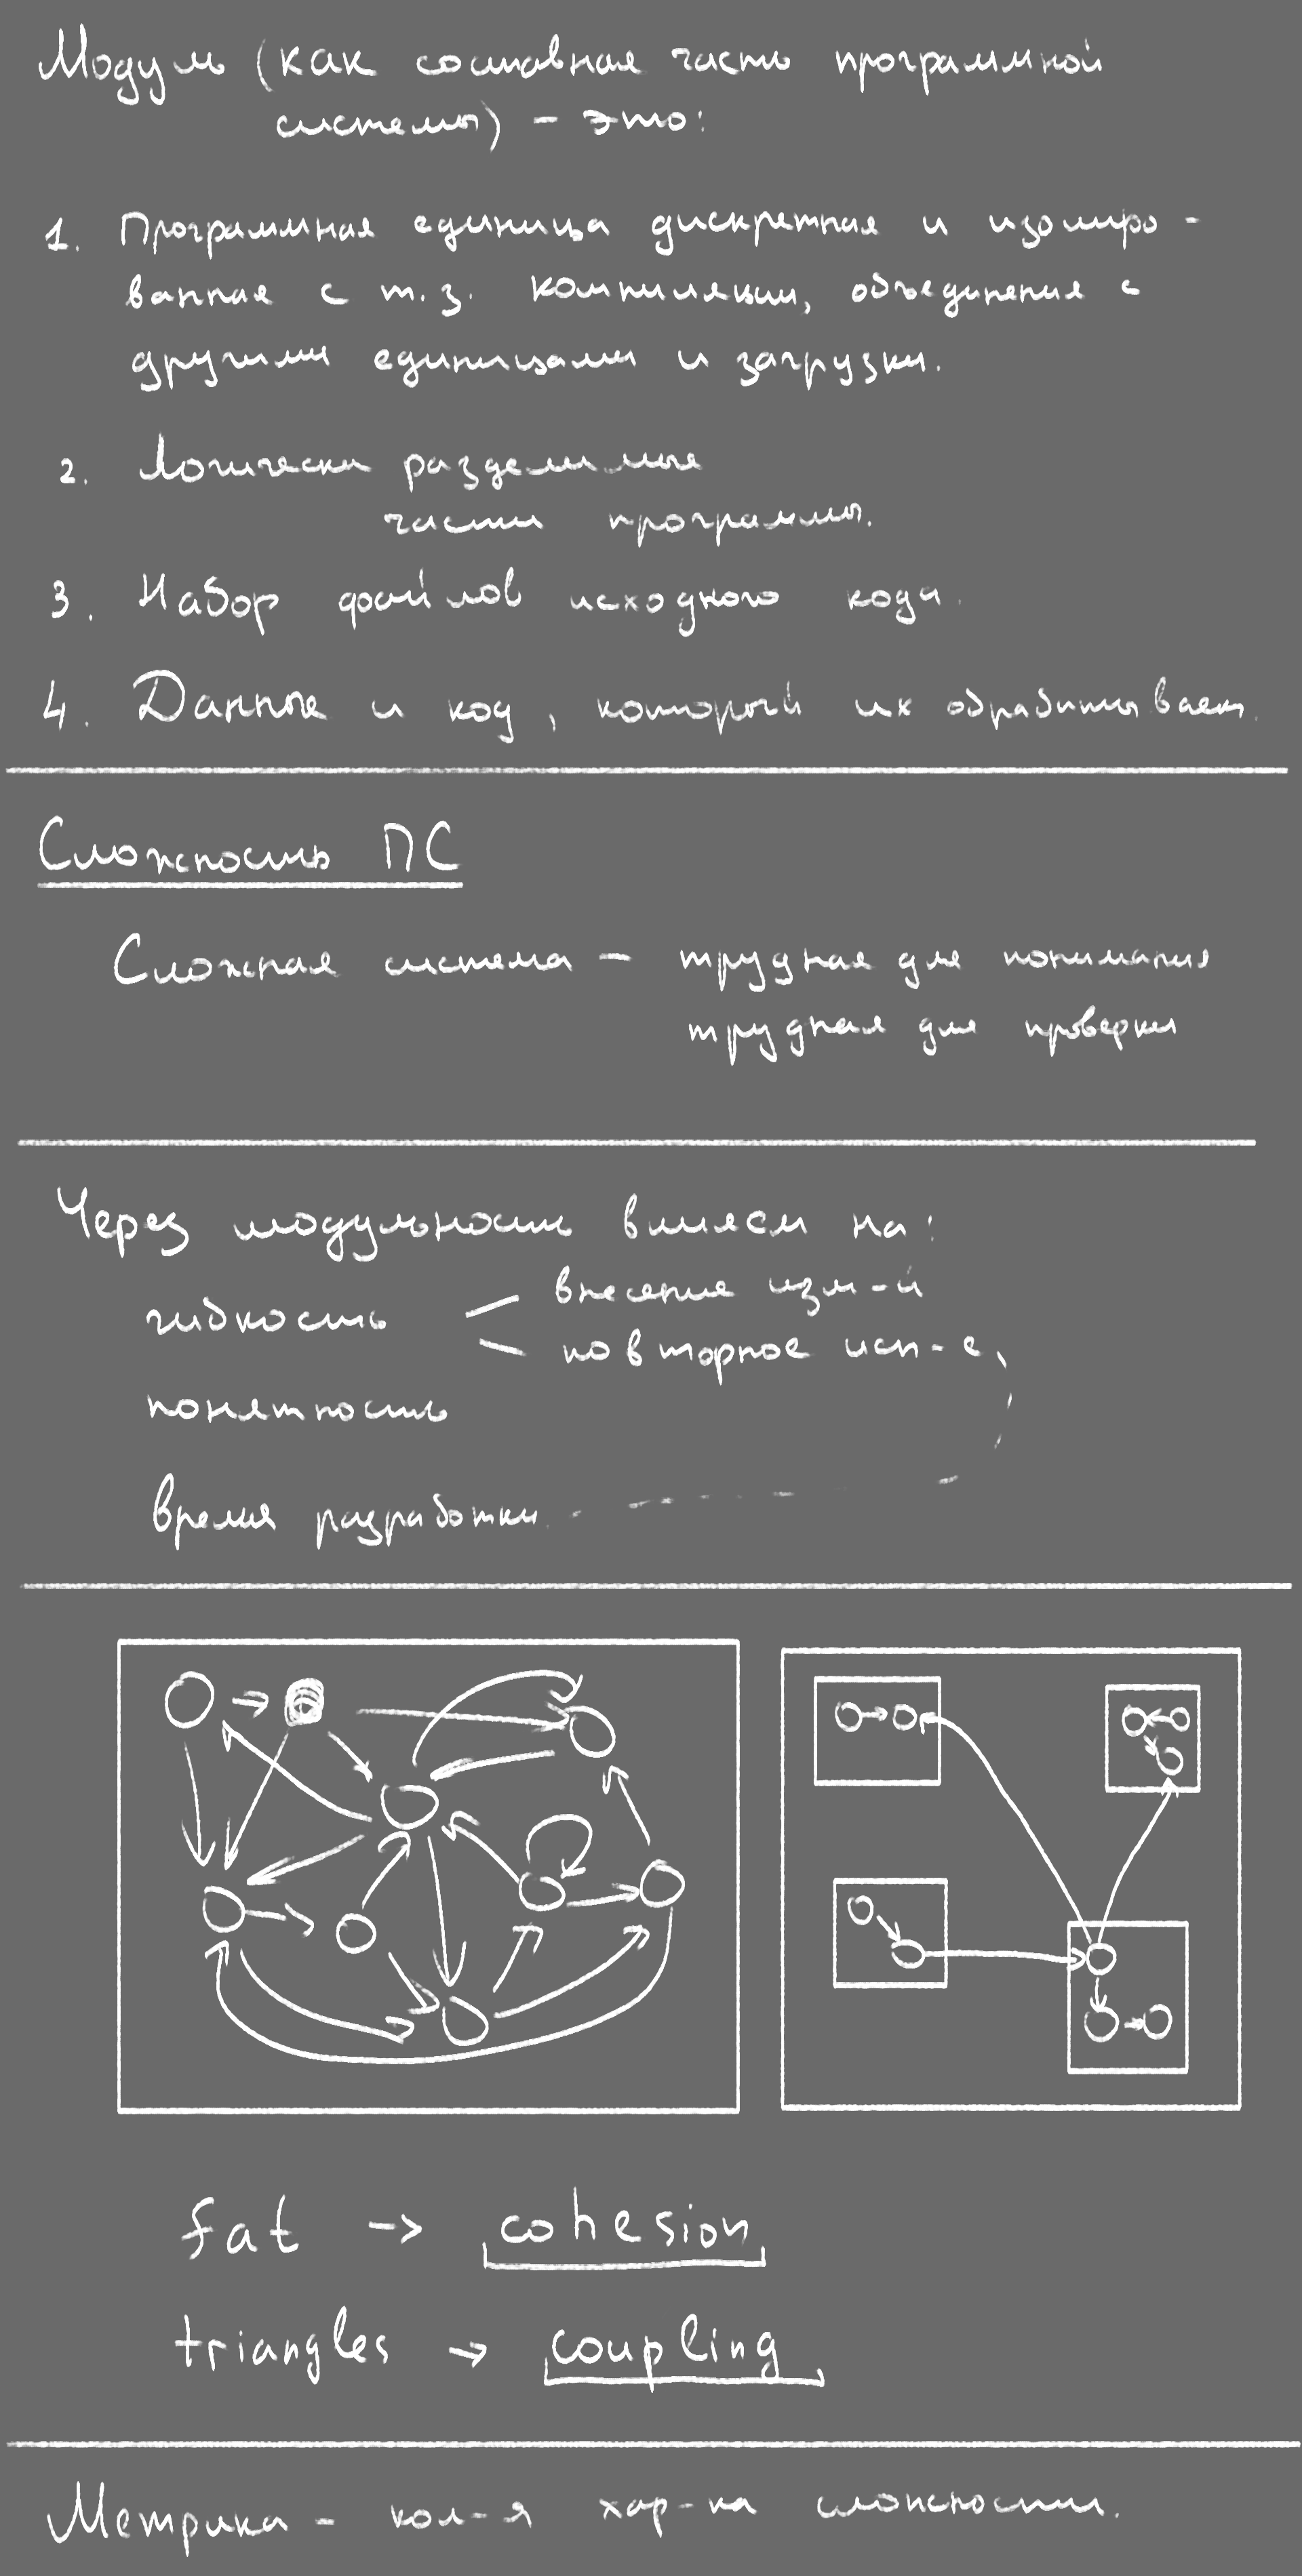 Модуль (как составная часть программной
системы) – это:
1. Программная единица дискретная и изолиро-
ванная с т.з. компиляции, объединения с
другими единицами и загрузки.
2. Логически разделимые
части программы.
3. Набор файлов исходного кода.
4. Данные и код, который их обрабатывает.
Сложность ПС
Сложная система – трудная для понимания
трудная для проверки
Через модульность влияем на:
гибкость
внесение изм-й
повторное исп-е,
понятность
время разработки.
fat → cohesion
triangles → coupling
Метрика – кол-я хар-ка сложности.